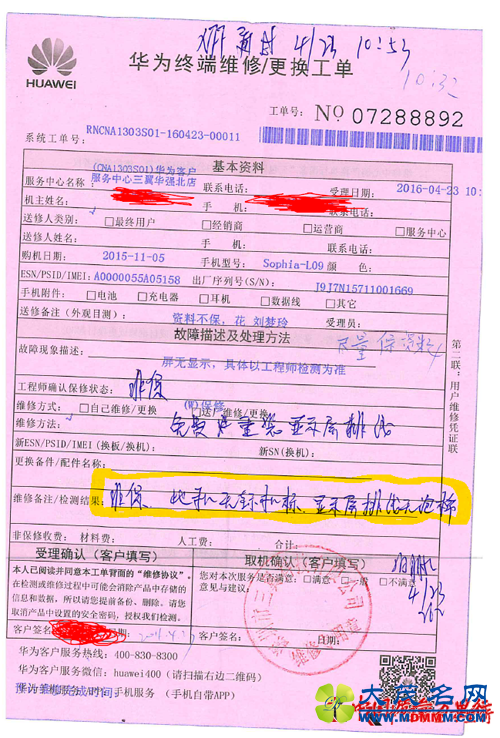 4/23 10:53
HUAWEI
华为终端维修/更换工单
10:32
工单号: NO 07288892
系统工单号: RNCNA1303S01-160423-00011
基本资料
(CNA1303S01)华为客户
服务中心名称: 服务中心三翼华强北店 联系电话: 受理日期: 2016-04-23 10:
机主姓名: 手 机: 联系电话:
送修人类别: □最终用户 □经销商 □运营商 □服务中心
送修人姓名: 手 机: 联系电话:
购机日期: 2015-11-05 手机型号: Sophia-L09 颜 色:
ESN/PSID/IMEI: A0000055A05158 出厂序列号(S/N): J9J7N15711001669
手机附件: □电池 □充电器 □耳机 □数据线 □其它
送修备注(外观目测): 资料不保; 花 刘梦玲 受理员:
故障描述及处理方法
尽量保资料
故障现象描述: 屏无显示, 具体以工程师检测为准
工程师确认保修状态: 非保
(W)保修
维修方式: □自己维修/更换 □送厂维修/更换
维修方法: 免费 重装显示屏排线
新ESN/PSID/IMEI (换板/换机): 新SN(换机):
更换备件/配件名称:
维修备注/检测结果: 非保、此手机无钢印标、显示屏排线无
非保修收费: 材料费: 人工费: 合计:
第二联: 用户维修凭证联
受理确认 (客户填写)
本人已阅读并同意本工单背面的“维修协议”。
在检测或维修过程中可能会消除产品中存储的
信息和数据, 所以请您提前备份、删除。请您
取消产品中设置的安全密码, 授权我们检测。
客户签名:
取机确认 (客户填写)
您对本次服务是否满意: □满意 □一般 □不满意
意见与建议:
4/23
客户签名: 日期:
维修专用章
华为客户服务热线: 400-830-8300
华为客户服务微信: huawei400 (请扫描右边二维码)
华为客户服务APP: 手机服务 (手机自带APP)
大麦名网
WWW.MDMMM.COM